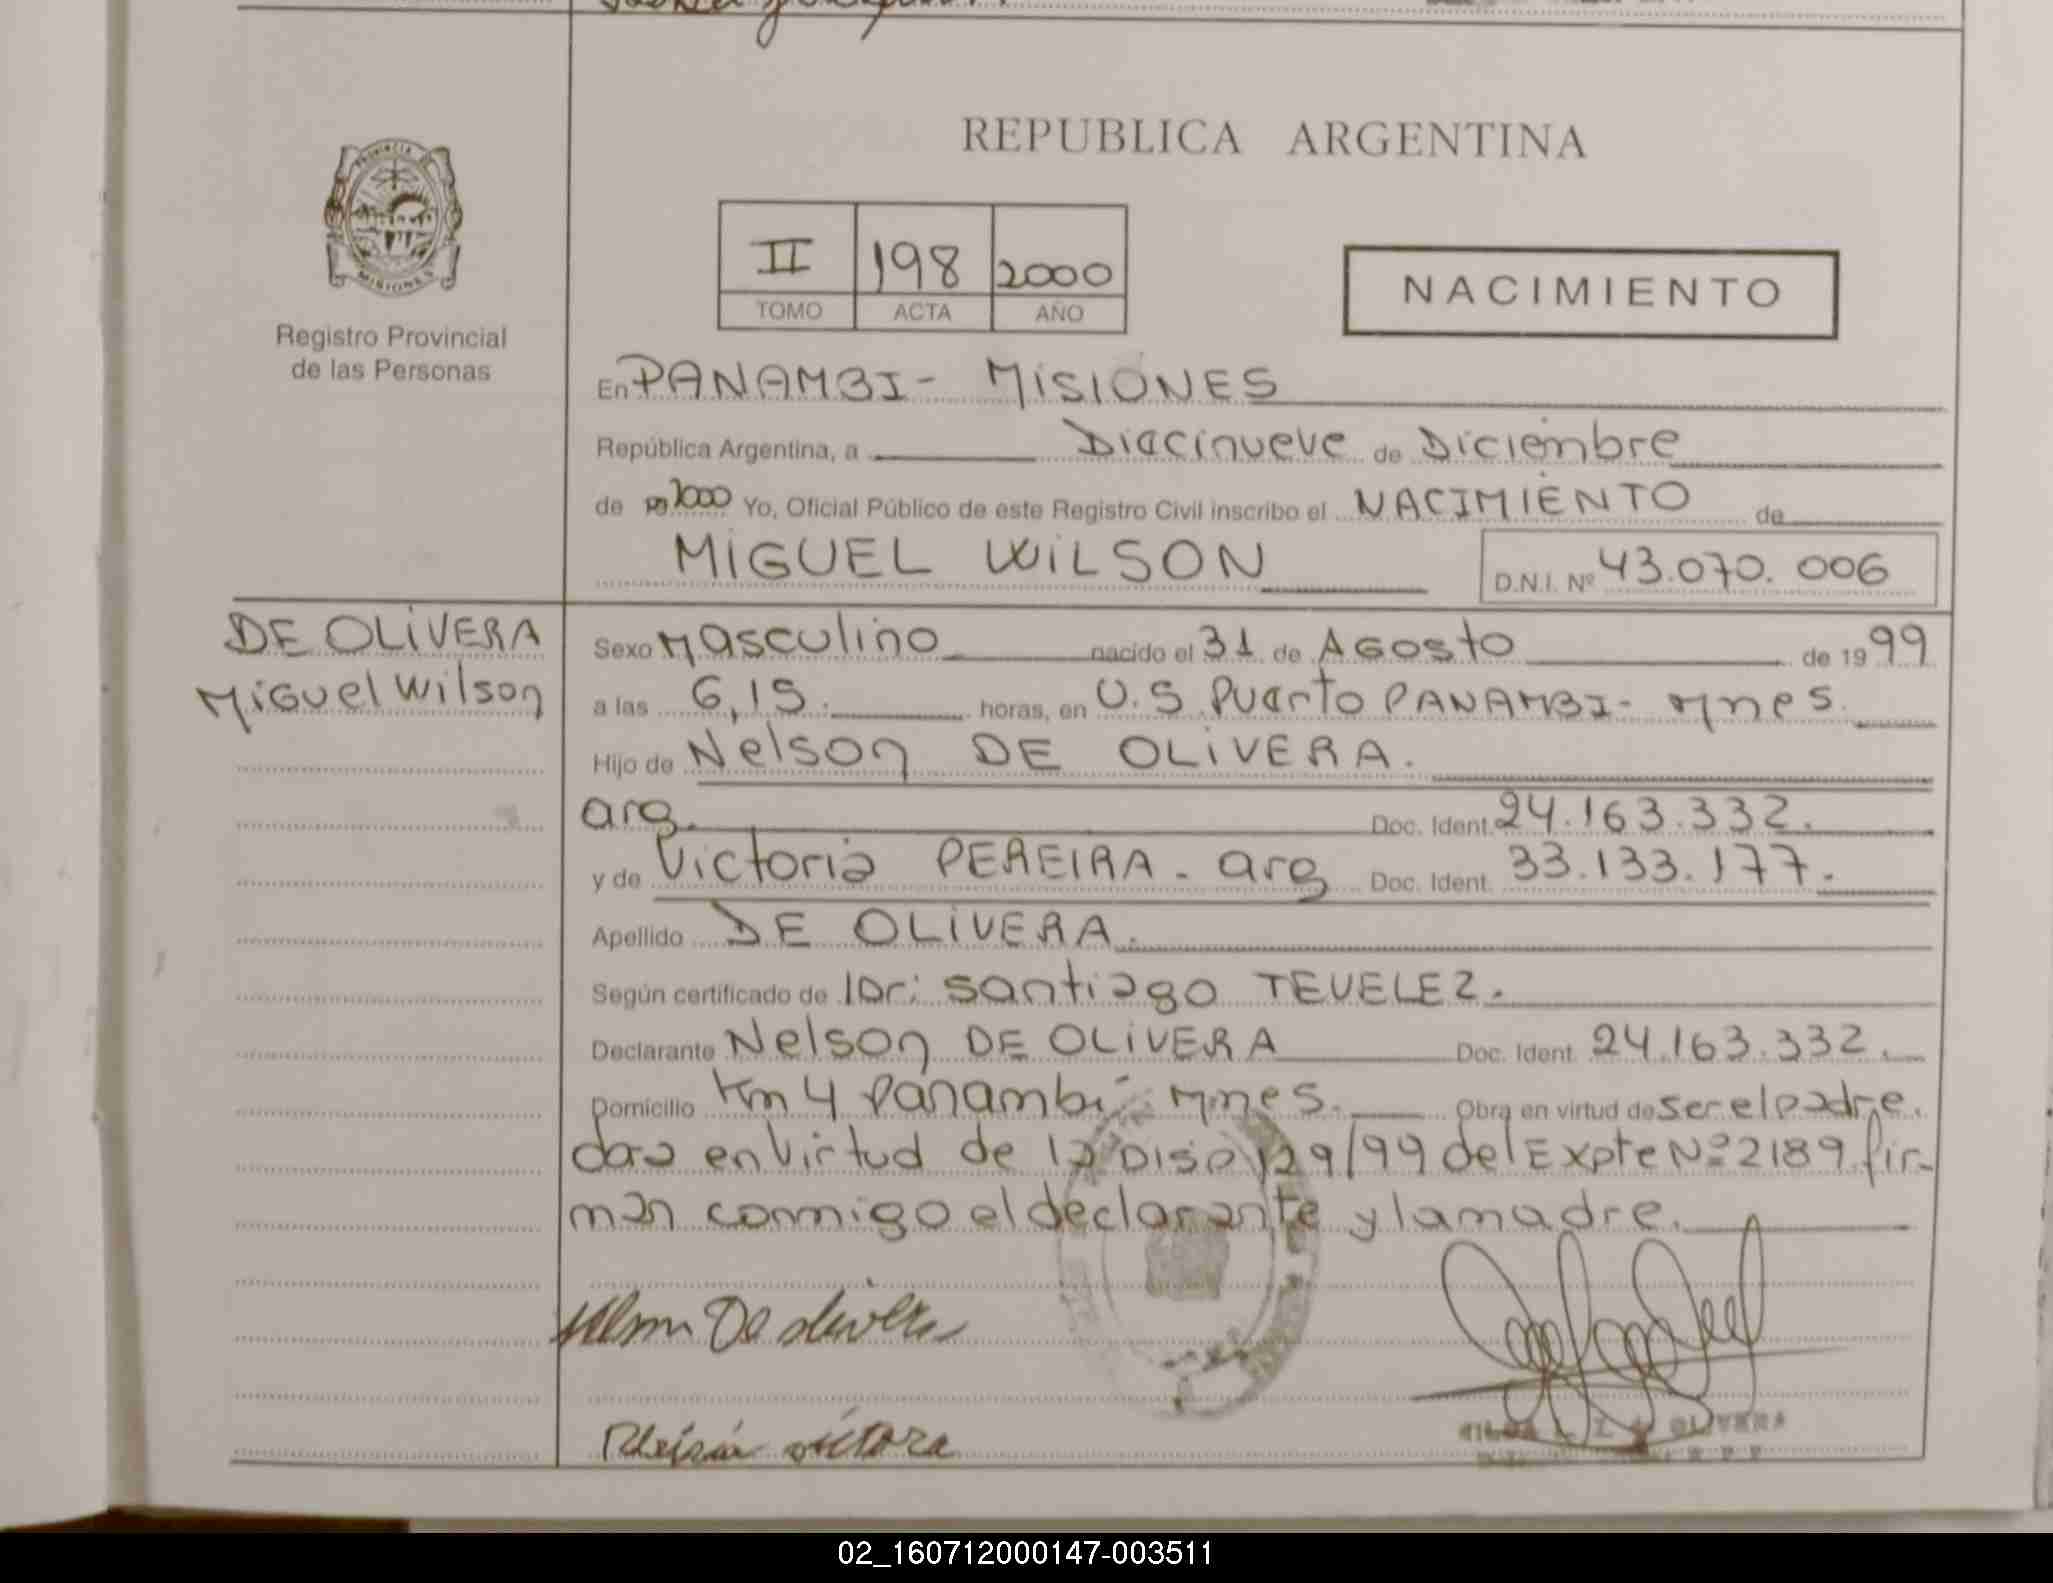 REPUBLICA ARGENTINA
PROVINCIA
MISIONES
Registro Provincial
de las Personas
II 198 2000
TOMO ACTA AÑO
NACIMIENTO
En PANAMBI - MISIONES
República Argentina, a Diecinueve de Diciembre
de 2000 Yo, Oficial Público de este Registro Civil inscribo el NACIMIENTO de
MIGUEL WILSON D.N.I. Nº 43.070.006
DE OLIVERA
Miguel Wilson
Sexo Masculino nacido el 31 de AGosto de 1999
a las 6,15. horas, en U.S Puerto PANAMBI - Mnes.
Hijo de Nelson DE OLIVERA.
arg. Doc. Ident. 24.163.332.
y de Victoria PEREIRA - arg Doc. Ident. 33.133.177.
Apellido DE OLIVERA.
Según certificado de Santiago TEVELEZ.
Declarante Nelson DE OLIVERA Doc. Ident. 24.163.332.
Domicilio Km 4 Panambi - Mnes. Obra en virtud de ser el padre.
en Virtud de la Disp 129/99 del Expte Nº 2189 fir-
man conmigo el declarante y la madre.
De olivera
OLIVERA
02_160712000147-003511